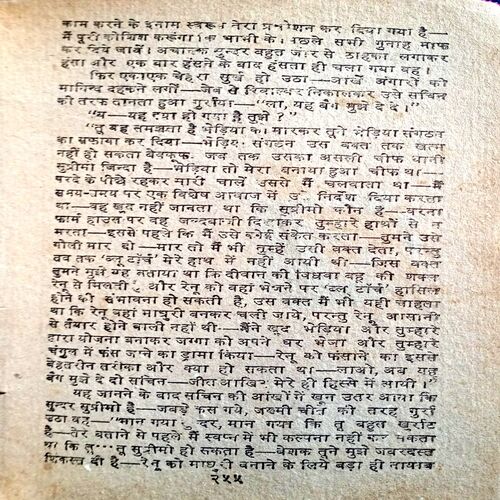 काम करने के इनाम स्वरूप तेरा प्रमोशन कर दिया गया है—
मैं पूरी कोशिश करूंगा कि भाभी के पिछले सभी गुनाह माफ
कर दिये जायें। अचानक सुन्दर बहुत जोर से ठहाका लगाकर
हंसा और एक बार हंसने के बाद हंसता ही चला गया वह।
फिर एकाएक चेहरा सुर्ख हो उठा—आंखें अंगारों की
मानिन्द दहकने लगीं—जेब से रिवाल्वर निकालकर उसे सचिन
की तरफ तानता हुआ गुर्राया—"ला, यह बैग मुझे दे दे।"
"य—यह क्या हो गया है तुझे ?"
"तू यह समझता है भेड़िया को मारकर तूने भेड़िया संगठन
का सफाया कर दिया—भेड़िया संगठन उस वक्त तक खत्म
नहीं हो सकता बेवकूफ जब तक उसका असली चीफ यानी
सुप्रीमो जिन्दा है—भेड़िया तो मेरा बनाया हुआ चीफ था—
परदे के पीछे रहकर सारी चालें उससे मैं चलवाता था—मैं
समय-समय पर एक विशेष आवाज में उसे निर्देश दिया करता
था—वह खुद नहीं जानता था कि सुप्रीमो कौन है—वरना
फार्म हाउस पर वह जल्दबाजी दिखाकर तुम्हारे हाथों से न
मरता—इससे पहले कि मैं उसे कोई संकेत करता—तुमने उसे
गोली मार दी—मार तो मैं भी तुम्हें उसी वक्त देता, परन्तु
तब तक 'ब्लू टॉर्च' मेरे हाथ में नहीं आयी थी—जिस वक्त
तुमने मुझे यह बताया था कि दीवान की विधवा बहू की शक्ल
रेनू से मिलती है और रेनू को वहां भेजने पर 'ब्लू टॉर्च' हासिल
होने की संभावना हो सकती है, उस वक्त मैं भी यही चाहता
था कि रेनू वहां माधुरी बनकर चली जाये, परन्तु रेनू आसानी
से तैयार होने वाली नहीं थी—मैंने खुद भेड़िया और तुम्हारे
द्वारा योजना बनाकर जग्गा को अपने घर भेजा और तुम्हारे
चंगुल में फंस जाने का ड्रामा किया—रेनू को फंसाने का इससे
बेहतरीन तरीका और क्या हो सकता था—लाओ, अब यह
बैग मुझे दे दो सचिन—जीत आखिर मेरे ही हिस्से में आयी।"
यह जानने के बाद सचिन की आंखों में खून उतर आया कि
सुन्दर सुप्रीमो है—जबड़े कस गये, जख्मी चीते की तरह गुर्रा
उठा वह—"मान गया सुन्दर, मान गया कि तू बहुत खुर्राट
है—तेरे बताने से पहले मैं स्वप्न में भी कल्पना नहीं कर सकता
था कि तू... तू सुप्रीमो हो सकता है—बेशक तूने मुझे जबरदस्त
शिकस्त दी है—रेनू को माधुरी बनाने के लिये बड़ा ही नायाब
२५५